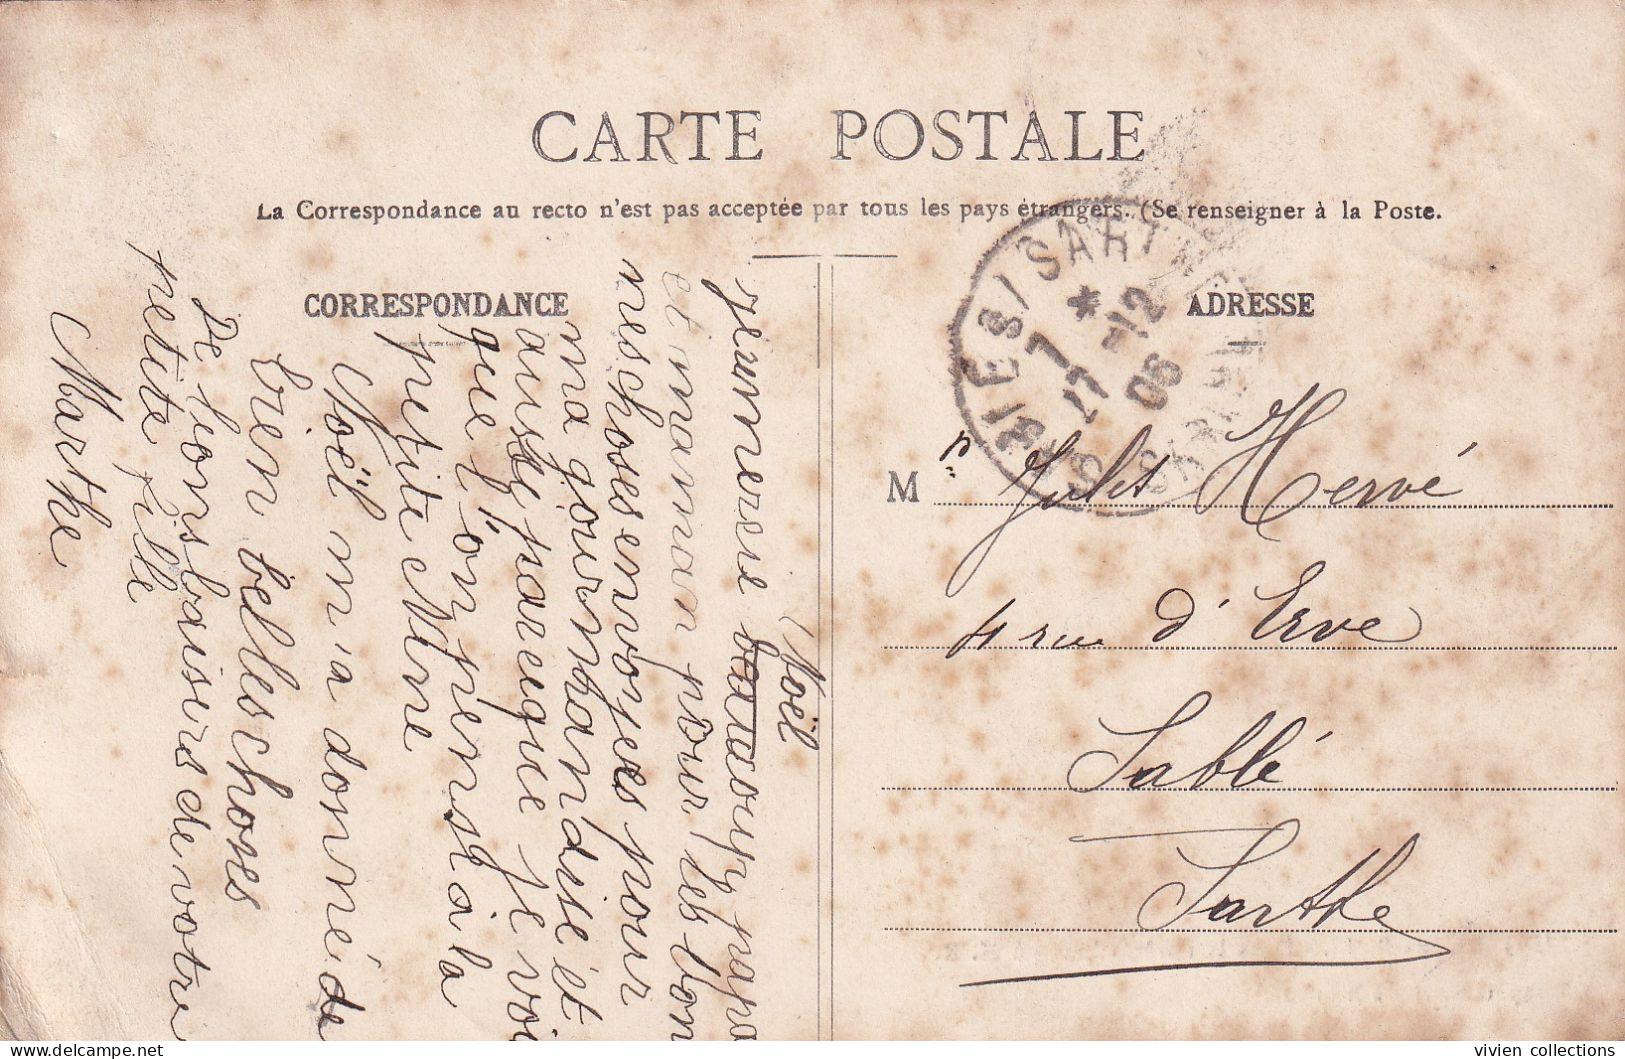 CARTE POSTALE
La Correspondance au recto n'est pas acceptée par tous les pays étrangers. (Se renseigner à la Poste.
CORRESPONDANCE
ADRESSE
Noël
Je remercie beaucoup papa
et maman pour les bon
nes choses envoyes pour
ma gourmandise et
aussi parceque je voi
que l'on pense à la
petite Mine
Noël m'a donné de
bien belles choses
De bons baisers de votre
petite fille
Marthe
SARTHE
7 * -12
17 06
M r Jules Hervé
4 rue d'Erve
Sablé
Sarthe
vivien collections